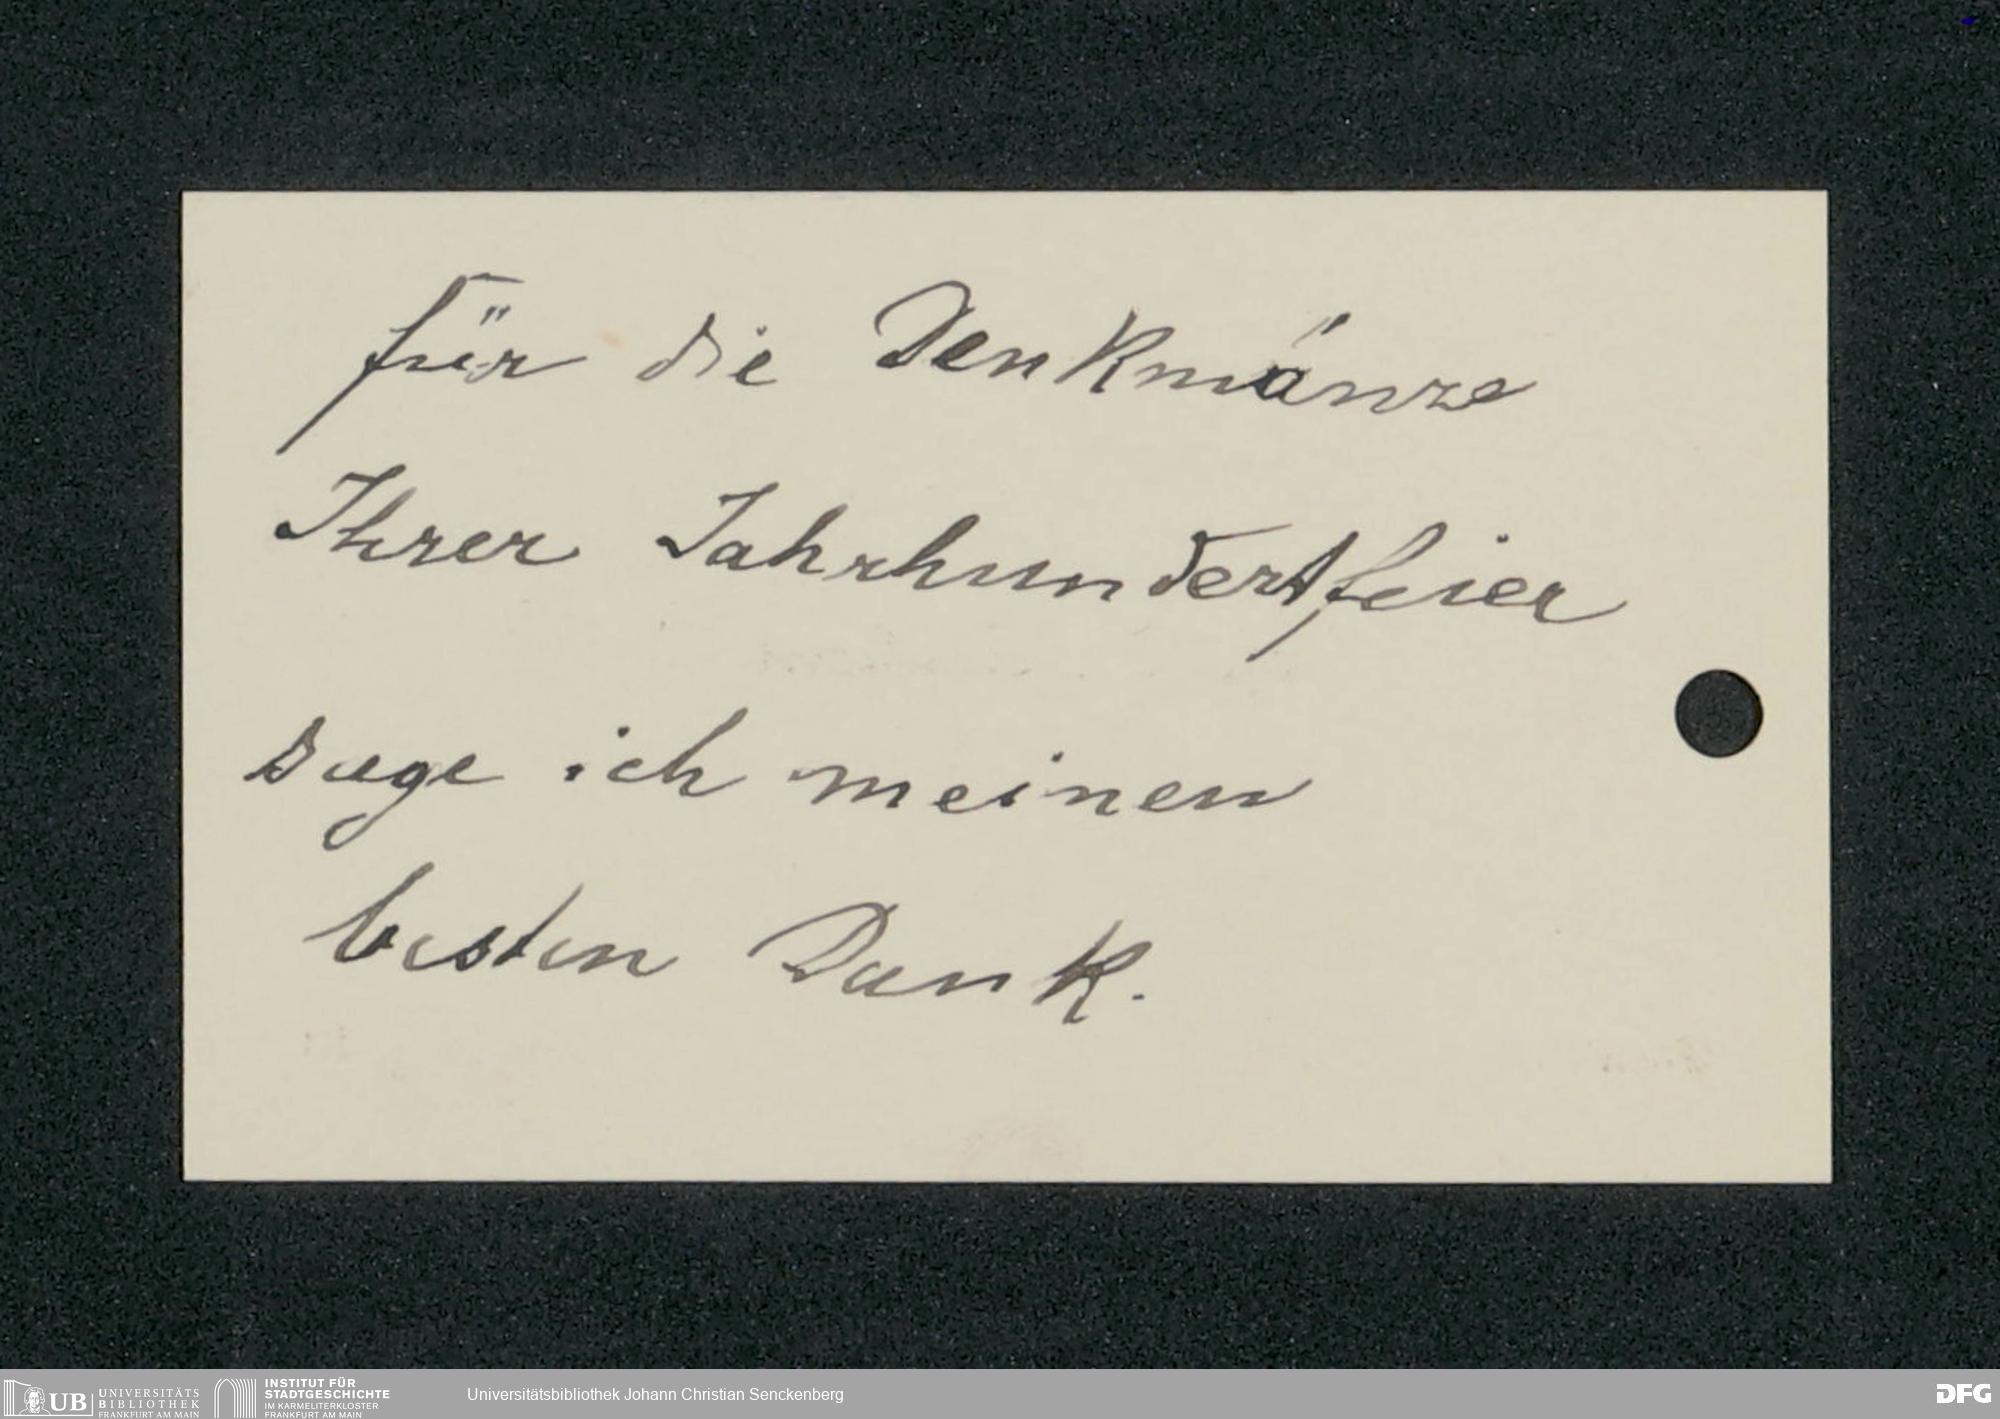 für die Denkmünze
Ihrer Jahrhundertfeier
sage ich meinen
besten Dank.
UB UNIVERSITÄTS BIBLIOTHEK FRANKFURT AM MAIN
INSTITUT FÜR STADTGESCHICHTE IM KARMELITERKLOSTER FRANKFURT AM MAIN
Universitätsbibliothek Johann Christian Senckenberg
DFG